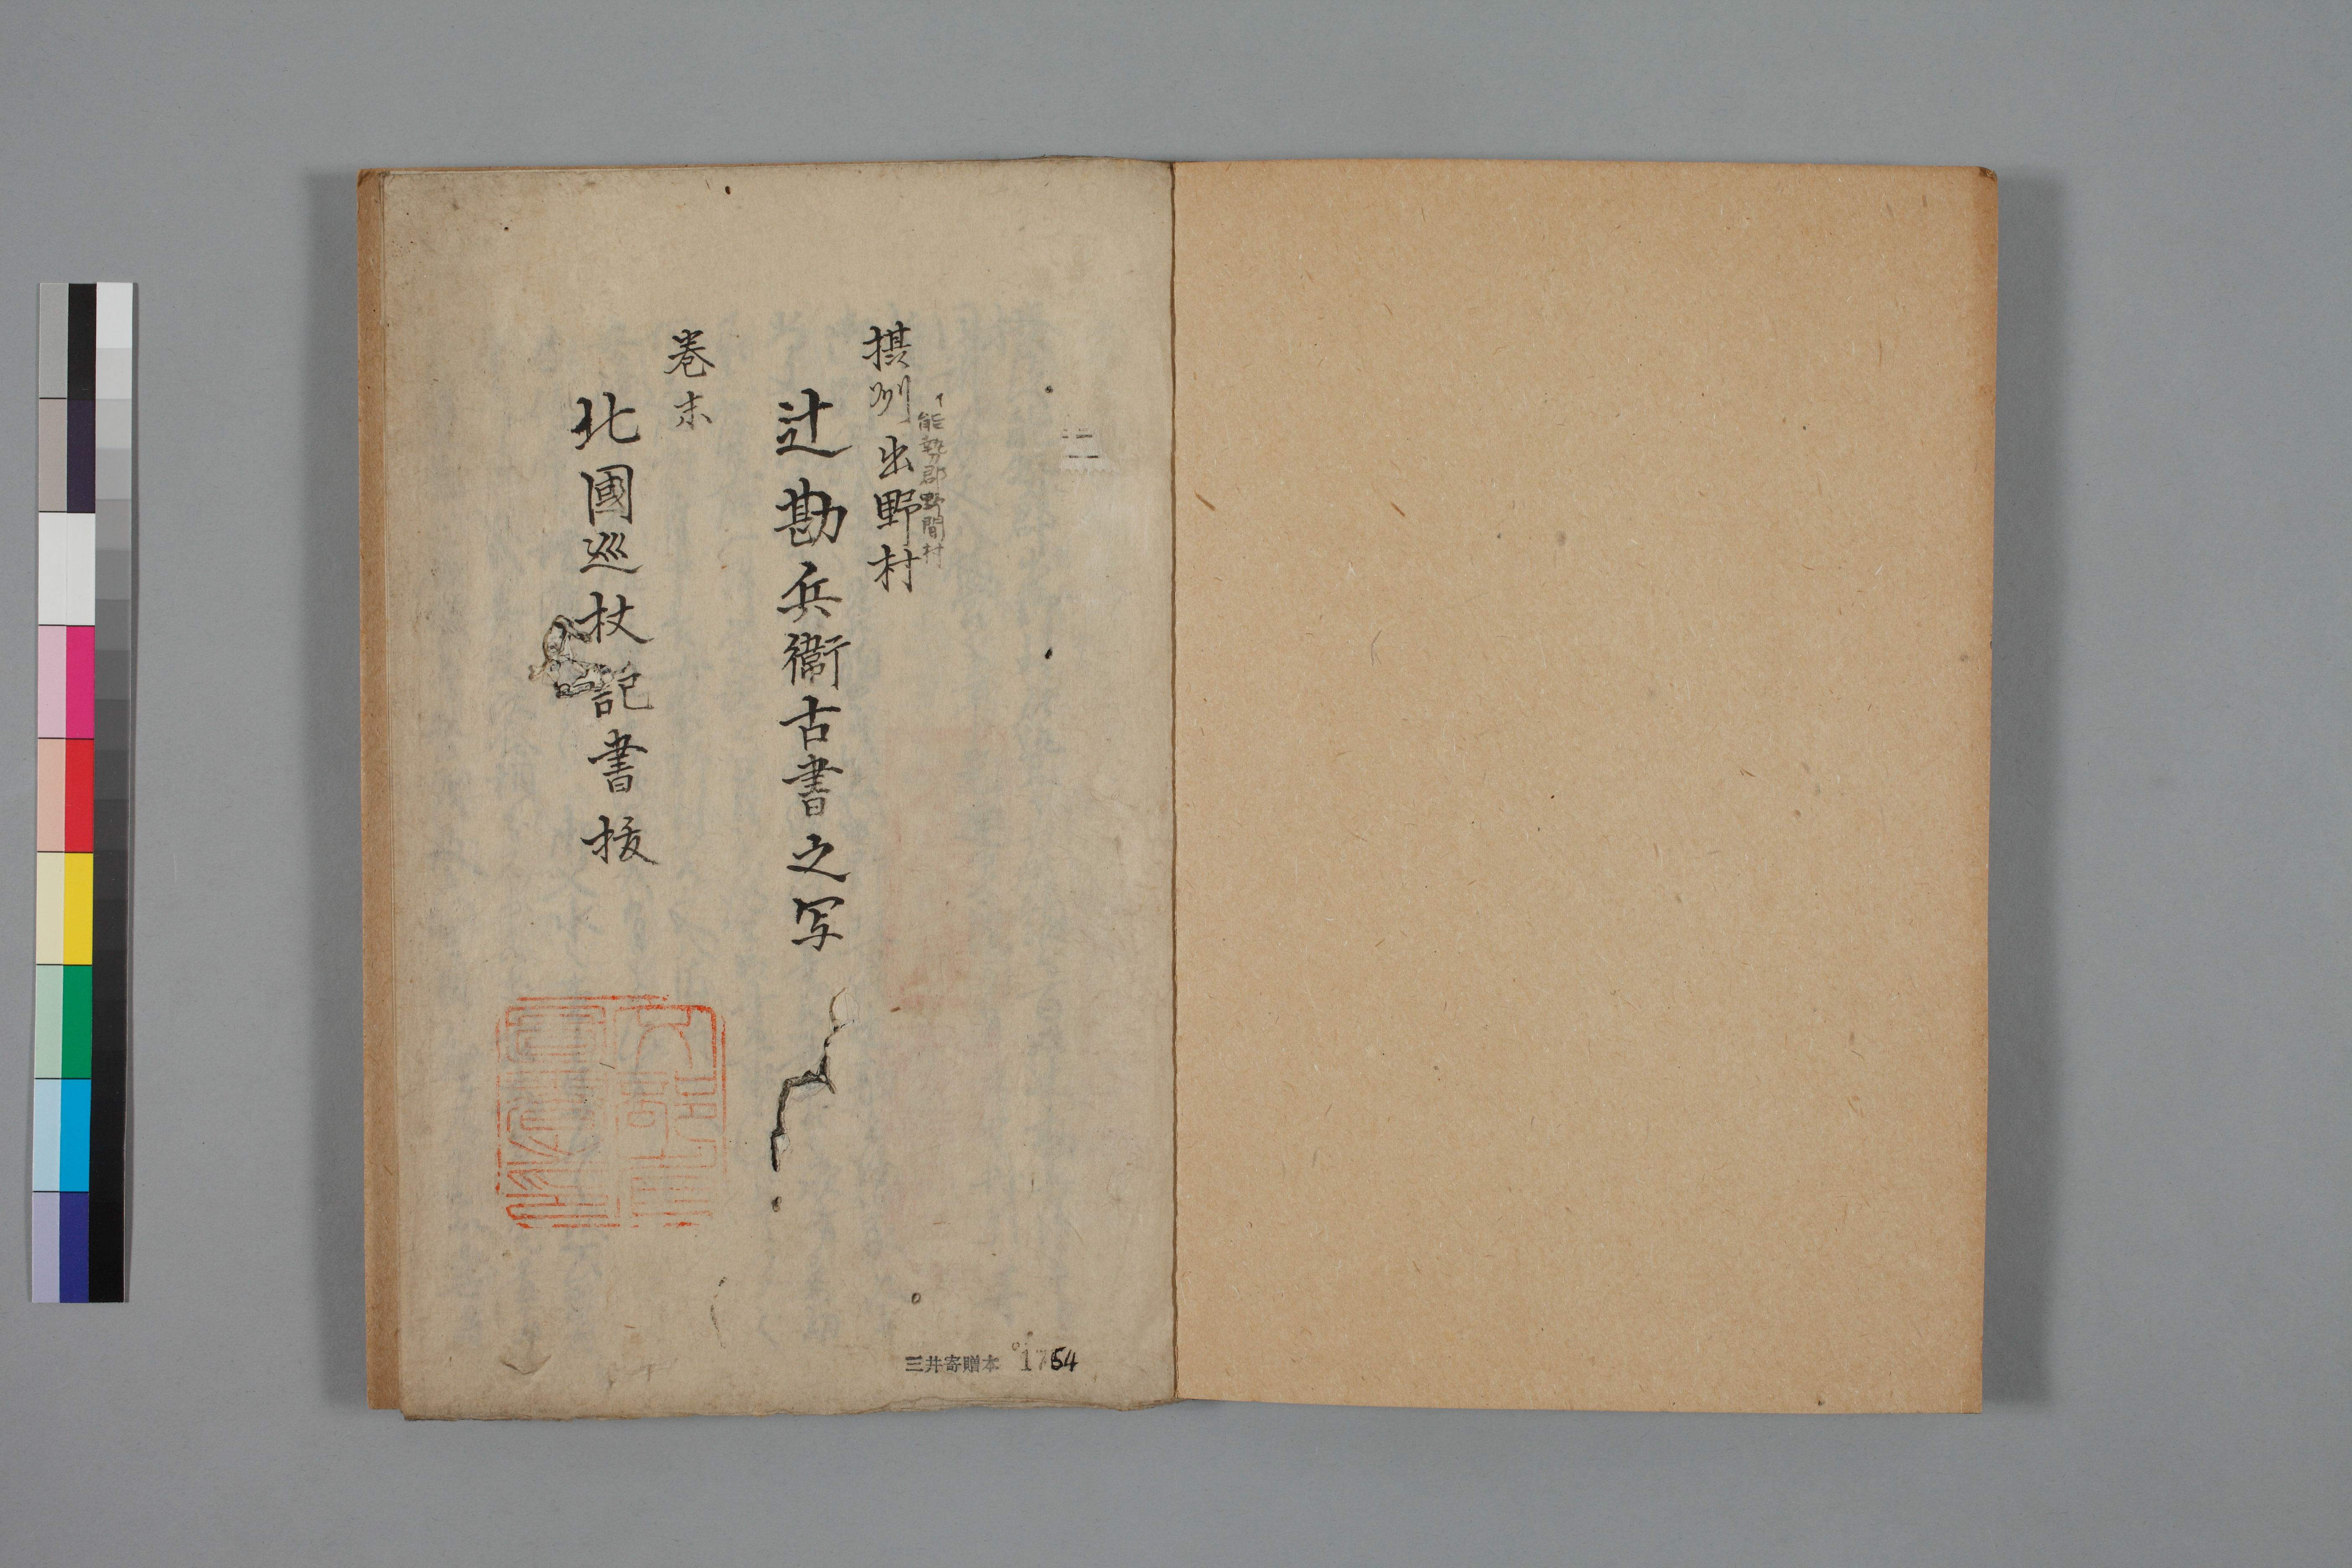 能勢郡野間村
摂州出野村
辻勘兵衛古書之写
巻末
北國巡杖記書抜
三井寄贈本 1754